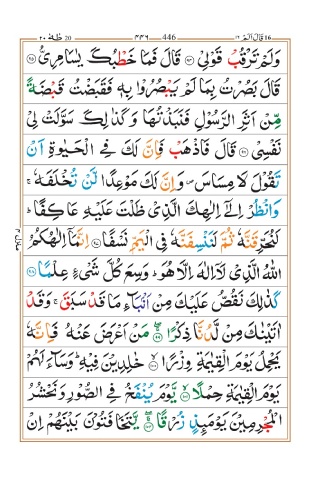 قَالَ اَلَمْ ١٦ 446 ٤٤٦ طٰهٰ ٢٠
وَلَمْ تَرْقُبْ قَوْلِیْ ﴿٩٤﴾ قَالَ فَمَا خَطْبُكَ یٰسَامِرِیُّ ﴿٩٥﴾
قَالَ بَصُرْتُ بِمَا لَمْ یَبْصُرُوْا بِهٖ فَقَبَضْتُ قَبْضَةً
مِّنْ اَثَرِ الرَّسُوْلِ فَنَبَذْتُهَا وَ كَذٰلِكَ سَوَّلَتْ لِیْ
نَفْسِیْ ﴿٩٦﴾ قَالَ فَاذْهَبْ فَاِنَّ لَكَ فِی الْحَیٰوةِ اَنْ
تَقُوْلَ لَا مِسَاسَ ۪ وَ اِنَّ لَكَ مَوْعِدًا لَّنْ تُخْلَفَهٗ ۚ
وَ انْظُرْ اِلٰۤی اِلٰهِكَ الَّذِیْ ظَلْتَ عَلَیْهِ عَاكِفًا ؕ
لَنُحَرِّقَنَّهٗ ثُمَّ لَنَنْسِفَنَّهٗ فِی الْیَمِّ نَسْفًا ﴿٩٧﴾ اِنَّمَاۤ اِلٰهُكُمُ
اللّٰهُ الَّذِیْ لَاۤ اِلٰهَ اِلَّا هُوَ ؕ وَسِعَ كُلَّ شَیْءٍ عِلْمًا ﴿٩٨﴾
كَذٰلِكَ نَقُصُّ عَلَیْكَ مِنْ اَنْۢبَآءِ مَا قَدْ سَبَقَ ۚ وَ قَدْ
اٰتَیْنٰكَ مِنْ لَّدُنَّا ذِكْرًا ﴿٩٩﴾ مَنْ اَعْرَضَ عَنْهُ فَاِنَّهٗ
یَحْمِلُ یَوْمَ الْقِیٰمَةِ وِزْرًا ﴿١٠٠﴾ خٰلِدِیْنَ فِیْهِ ؕ وَ سَآءَ لَهُمْ
یَوْمَ الْقِیٰمَةِ حِمْلًا ﴿١٠١﴾ یَّوْمَ یُنْفَخُ فِی الصُّوْرِ وَ نَحْشُرُ
الْمُجْرِمِیْنَ یَوْمَىِٕذٍ زُرْقًا ﴿١٠٢﴾ یَّتَخَافَتُوْنَ بَیْنَهُمْ اِنْ